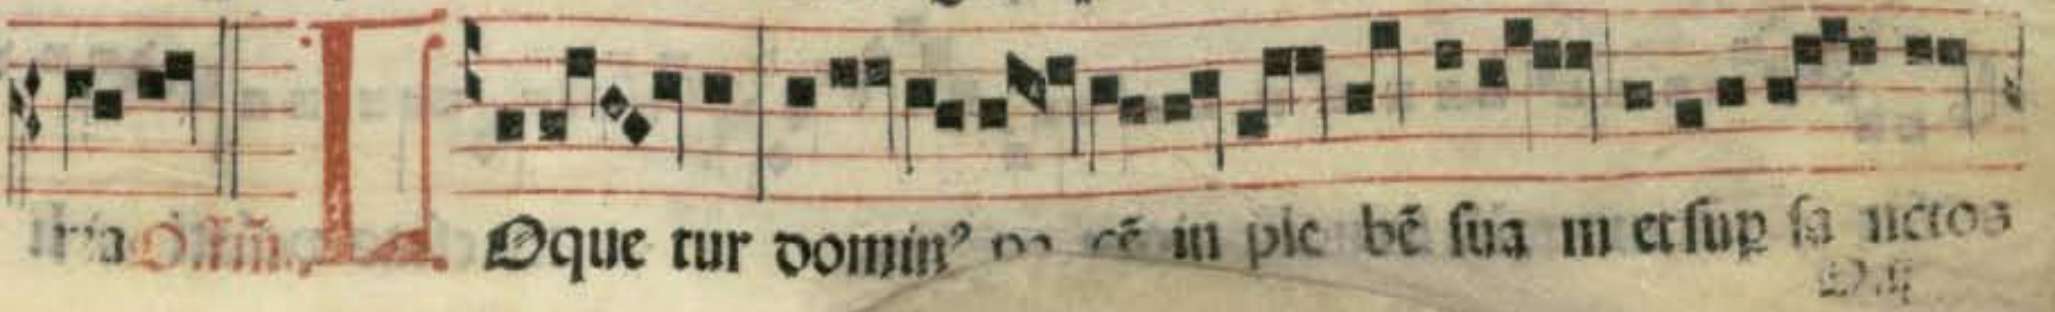 tria Offm̄. L Oque tur domin⁹ pa cē in ple bē sua m et sup̱ sa nctos